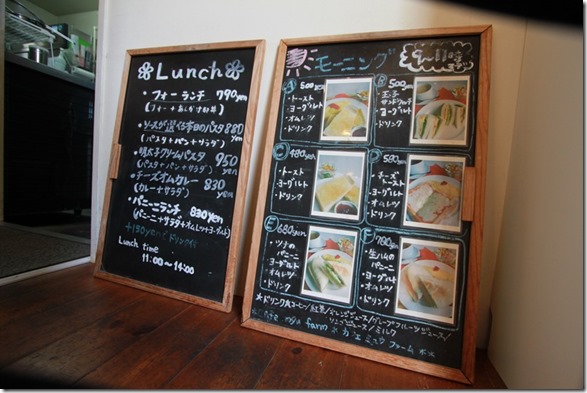 Lunch
・フォーランチ 790yen
(フォー+あんかけ丼)
・ソースが選べる本日のパスタ 880yen
(パスタ+パン+サラダ)
・明太子クリームパスタ 950yen
(パスタ+パン+サラダ)
・チーズオムカレー 830yen
(カレー+サラダ)
・パニーニランチ 830yen
(パニーニ+サラダ+オムレツ+ヨーグルト)
+150yen ドリンク付
Lunch time
11:00〜14:00
モーニング
A 500yen
・トースト
・ヨーグルト
・オムレツ
・ドリンク
B 500yen
・玉子サンドウィッチ
・ヨーグルト
・ドリンク
C 480yen
・トースト
・ヨーグルト
・ドリンク
D 580yen
・チーズトースト
・ヨーグルト
・オムレツ
・ドリンク
E 680yen
・ツナのパニーニ
・ヨーグルト
・オムレツ
・ドリンク
F 780yen
・生ハムのパニーニ
・ヨーグルト
・オムレツ
・ドリンク
★ドリンク…コーヒー/紅茶/オレンジジュース/グレープフルーツジュース/
リンゴジュース/ミルク
farm カフェ ミュウ ファーム